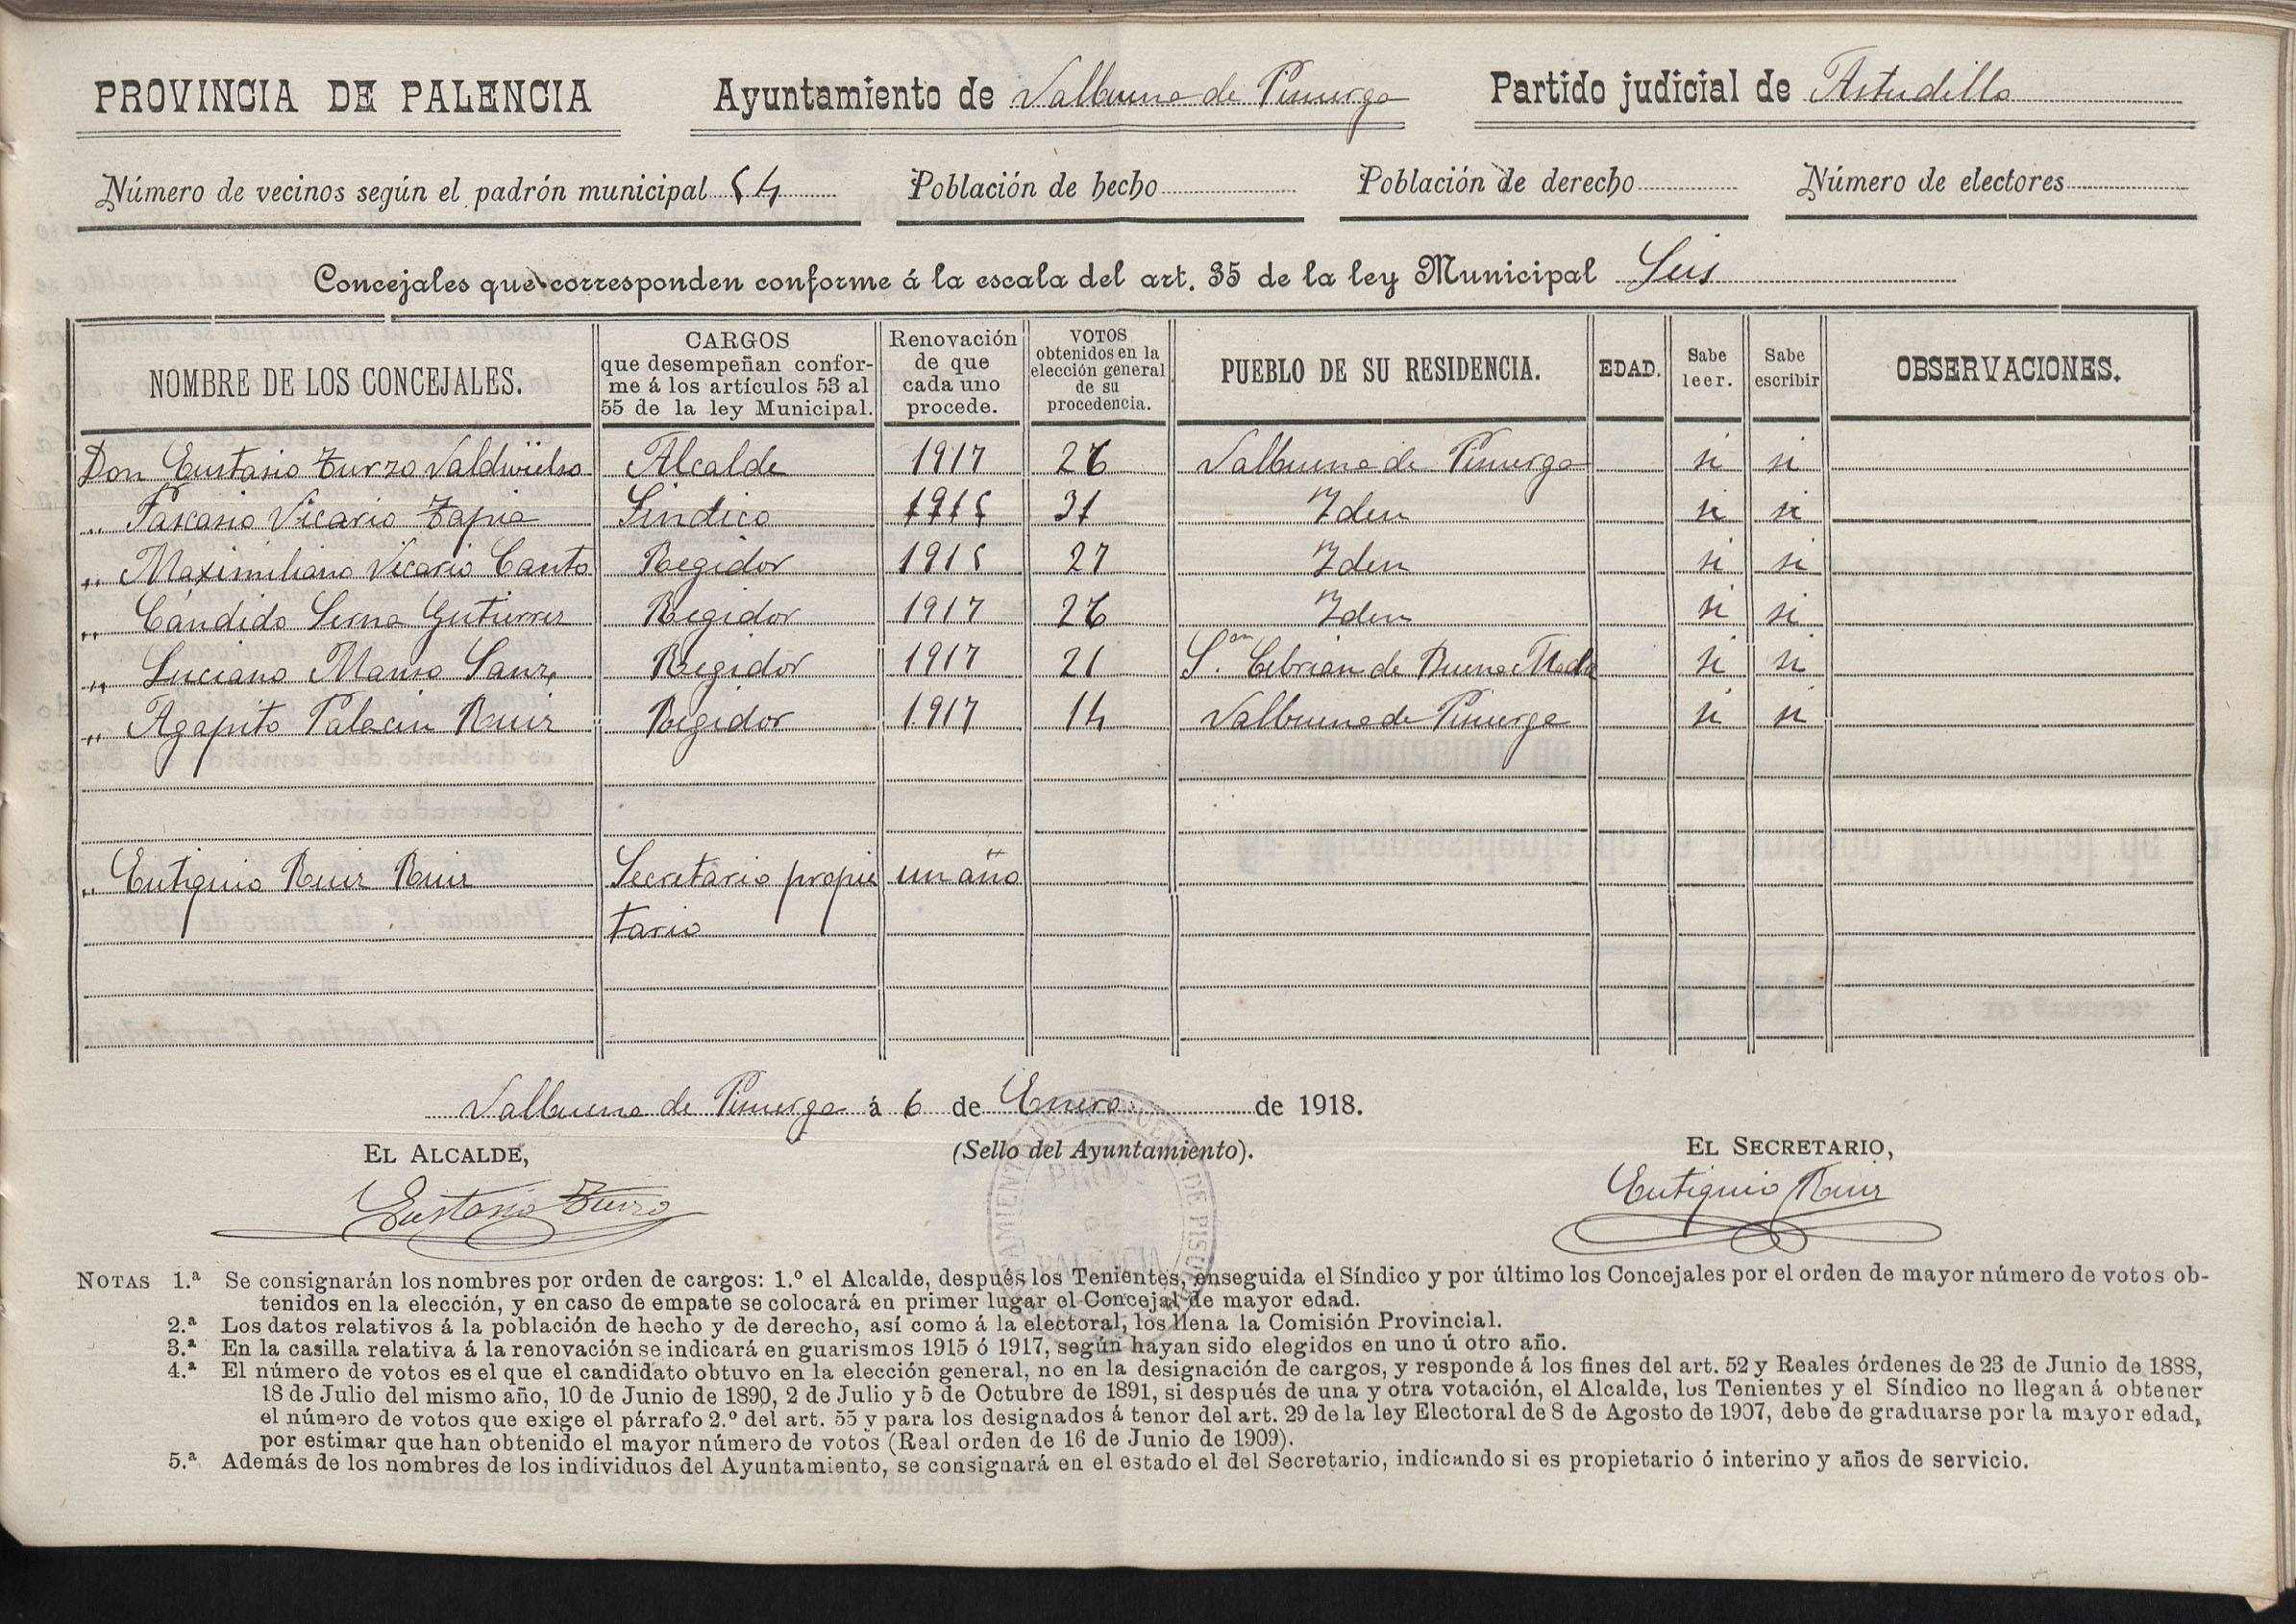 PROVINCIA DE PALENCIA Ayuntamiento de Valbuena de Pisuerga Partido judicial de Astudillo
Número de vecinos según el padrón municipal 54 Población de hecho Población de derecho Número de electores
Concejales que corresponden conforme á la escala del art. 35 de la ley Municipal Seis
NOMBRE DE LOS CONCEJALES. CARGOS que desempeñan confor- me á los artículos 53 al 55 de la ley Municipal. Renovación de que cada uno procede. VOTOS obtenidos en la elección general de su procedencia. PUEBLO DE SU RESIDENCIA. EDAD. Sabe leer. Sabe escribir OBSERVACIONES.
Don Eustasio Zurzo Valdivielso Alcalde 1917 26 Valbuena de Pisuerga si si
„ Pascasio Vicario Tapia Sindico 1915 31 Idem si si
„ Maximiliano Vicario Canto Regidor 1915 27 Idem si si
„ Cándido Serna Gutierrez Regidor 1917 26 Idem si si
„ Luciano Manso Sanz Regidor 1917 21 S.an Cebrian de Buena Madre si si
„ Agapito Palacin Ruiz Regidor 1917 14 Valbuena de Pisuerga si si
„ Eutiquio Ruiz Ruiz Secretario propie un año
tario
Valbuena de Pisuerga á 6 de Enero de 1918.
EL ALCALDE, (Sello del Ayuntamiento). EL SECRETARIO,
Eustasio Zurzo Eutiquio Ruiz
NOTAS 1.ª Se consignarán los nombres por orden de cargos: 1.º el Alcalde, después los Tenientes, enseguida el Síndico y por último los Concejales por el orden de mayor número de votos ob-
tenidos en la elección, y en caso de empate se colocará en primer lugar el Concejal de mayor edad.
2.ª Los datos relativos á la población de hecho y de derecho, así como á la electoral, los llena la Comisión Provincial.
3.ª En la casilla relativa á la renovación se indicará en guarismos 1915 ó 1917, según hayan sido elegidos en uno ú otro año.
4.ª El número de votos es el que el candidato obtuvo en la elección general, no en la designación de cargos, y responde á los fines del art. 52 y Reales órdenes de 23 de Junio de 1888,
18 de Julio del mismo año, 10 de Junio de 1890, 2 de Julio y 5 de Octubre de 1891, si después de una y otra votación, el Alcalde, los Tenientes y el Síndico no llegan á obtener
el número de votos que exige el párrafo 2.º del art. 55 y para los designados á tenor del art. 29 de la ley Electoral de 8 de Agosto de 1907, debe de graduarse por la mayor edad,
por estimar que han obtenido el mayor número de votos (Real orden de 16 de Junio de 1909).
5.ª Además de los nombres de los individuos del Ayuntamiento, se consignará en el estado el del Secretario, indicando si es propietario ó interino y años de servicio.